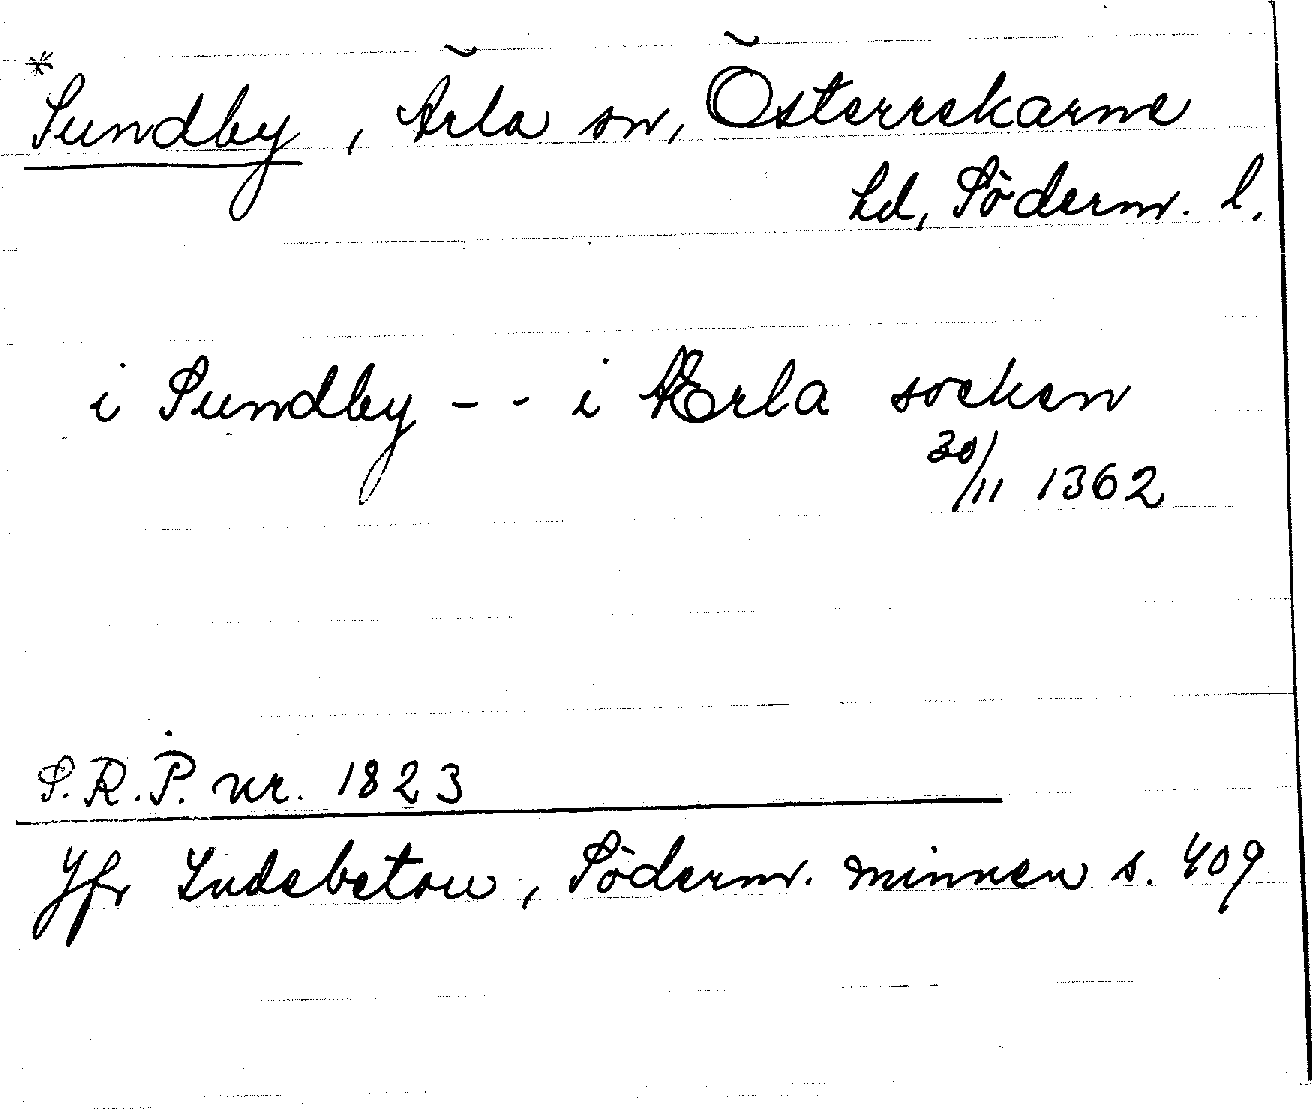 *Sundby, Ärla sn, Österrekarne
hd, Söderm. l.
i Sundby - - i Ærla socken
30/11 1362
S.R.P. nr. 1823
Jfr Indebetou, Söderm. minnen s. 409